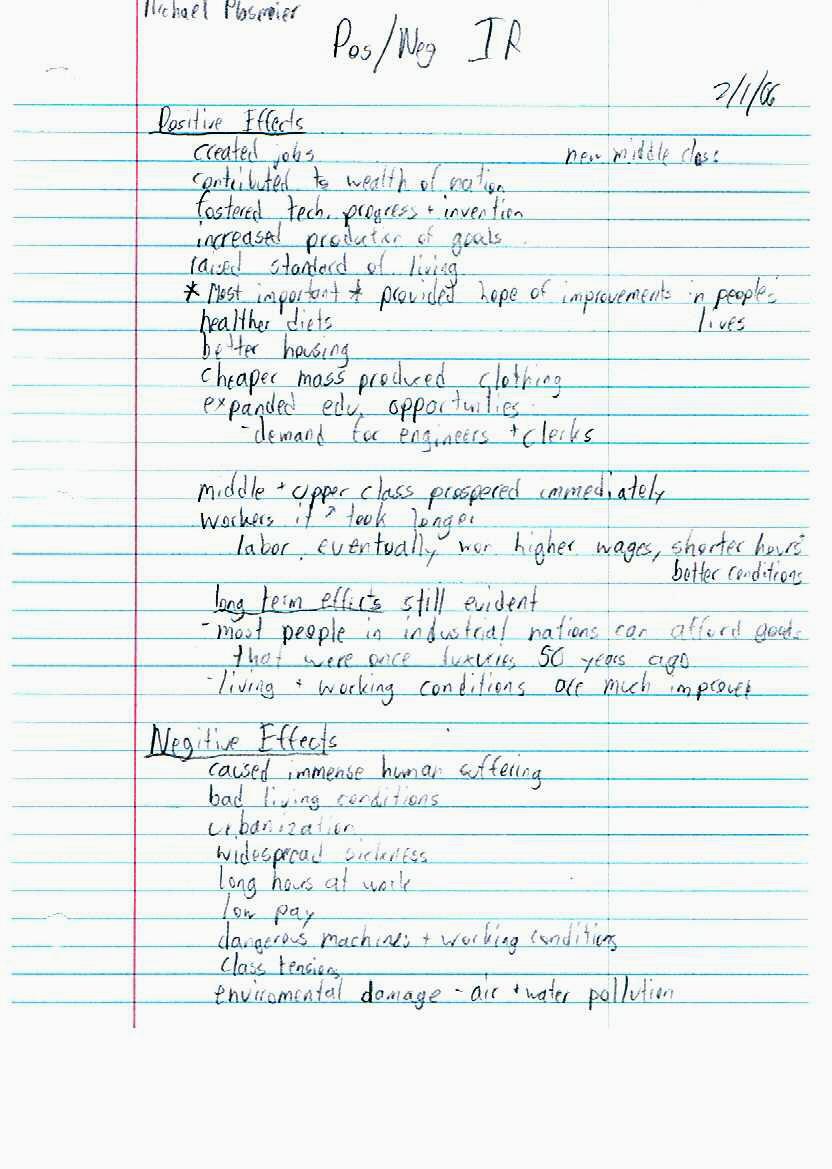 Michael Plasmeier
Pos/Neg IR
2/1/06
Positive Effects
created jobs new middle class
contributed to wealth of nation
fostered tech. progress + invention
increased production of goods
raised standard of living
* Most important * provided hope of improvements in people's
healther diets lives
better housing
cheaper mass produced clothing
expanded edu. opportunities
- demand for engineers + clerks
middle + upper class prospered immediately
workers it ↗ took longer
labor eventually won higher wages, shorter hours
better conditions
long term effects still evident
- most people in industrial nations can afford goods
that were once luxuries 50 years ago
- living + working conditions are much improved
Negitive Effects
caused immense human suffering
bad living conditions
urbanization
widespread sickness
long hours at work
low pay
dangerous machines + working conditions
class tensions
enviromental damage - air + water pollution